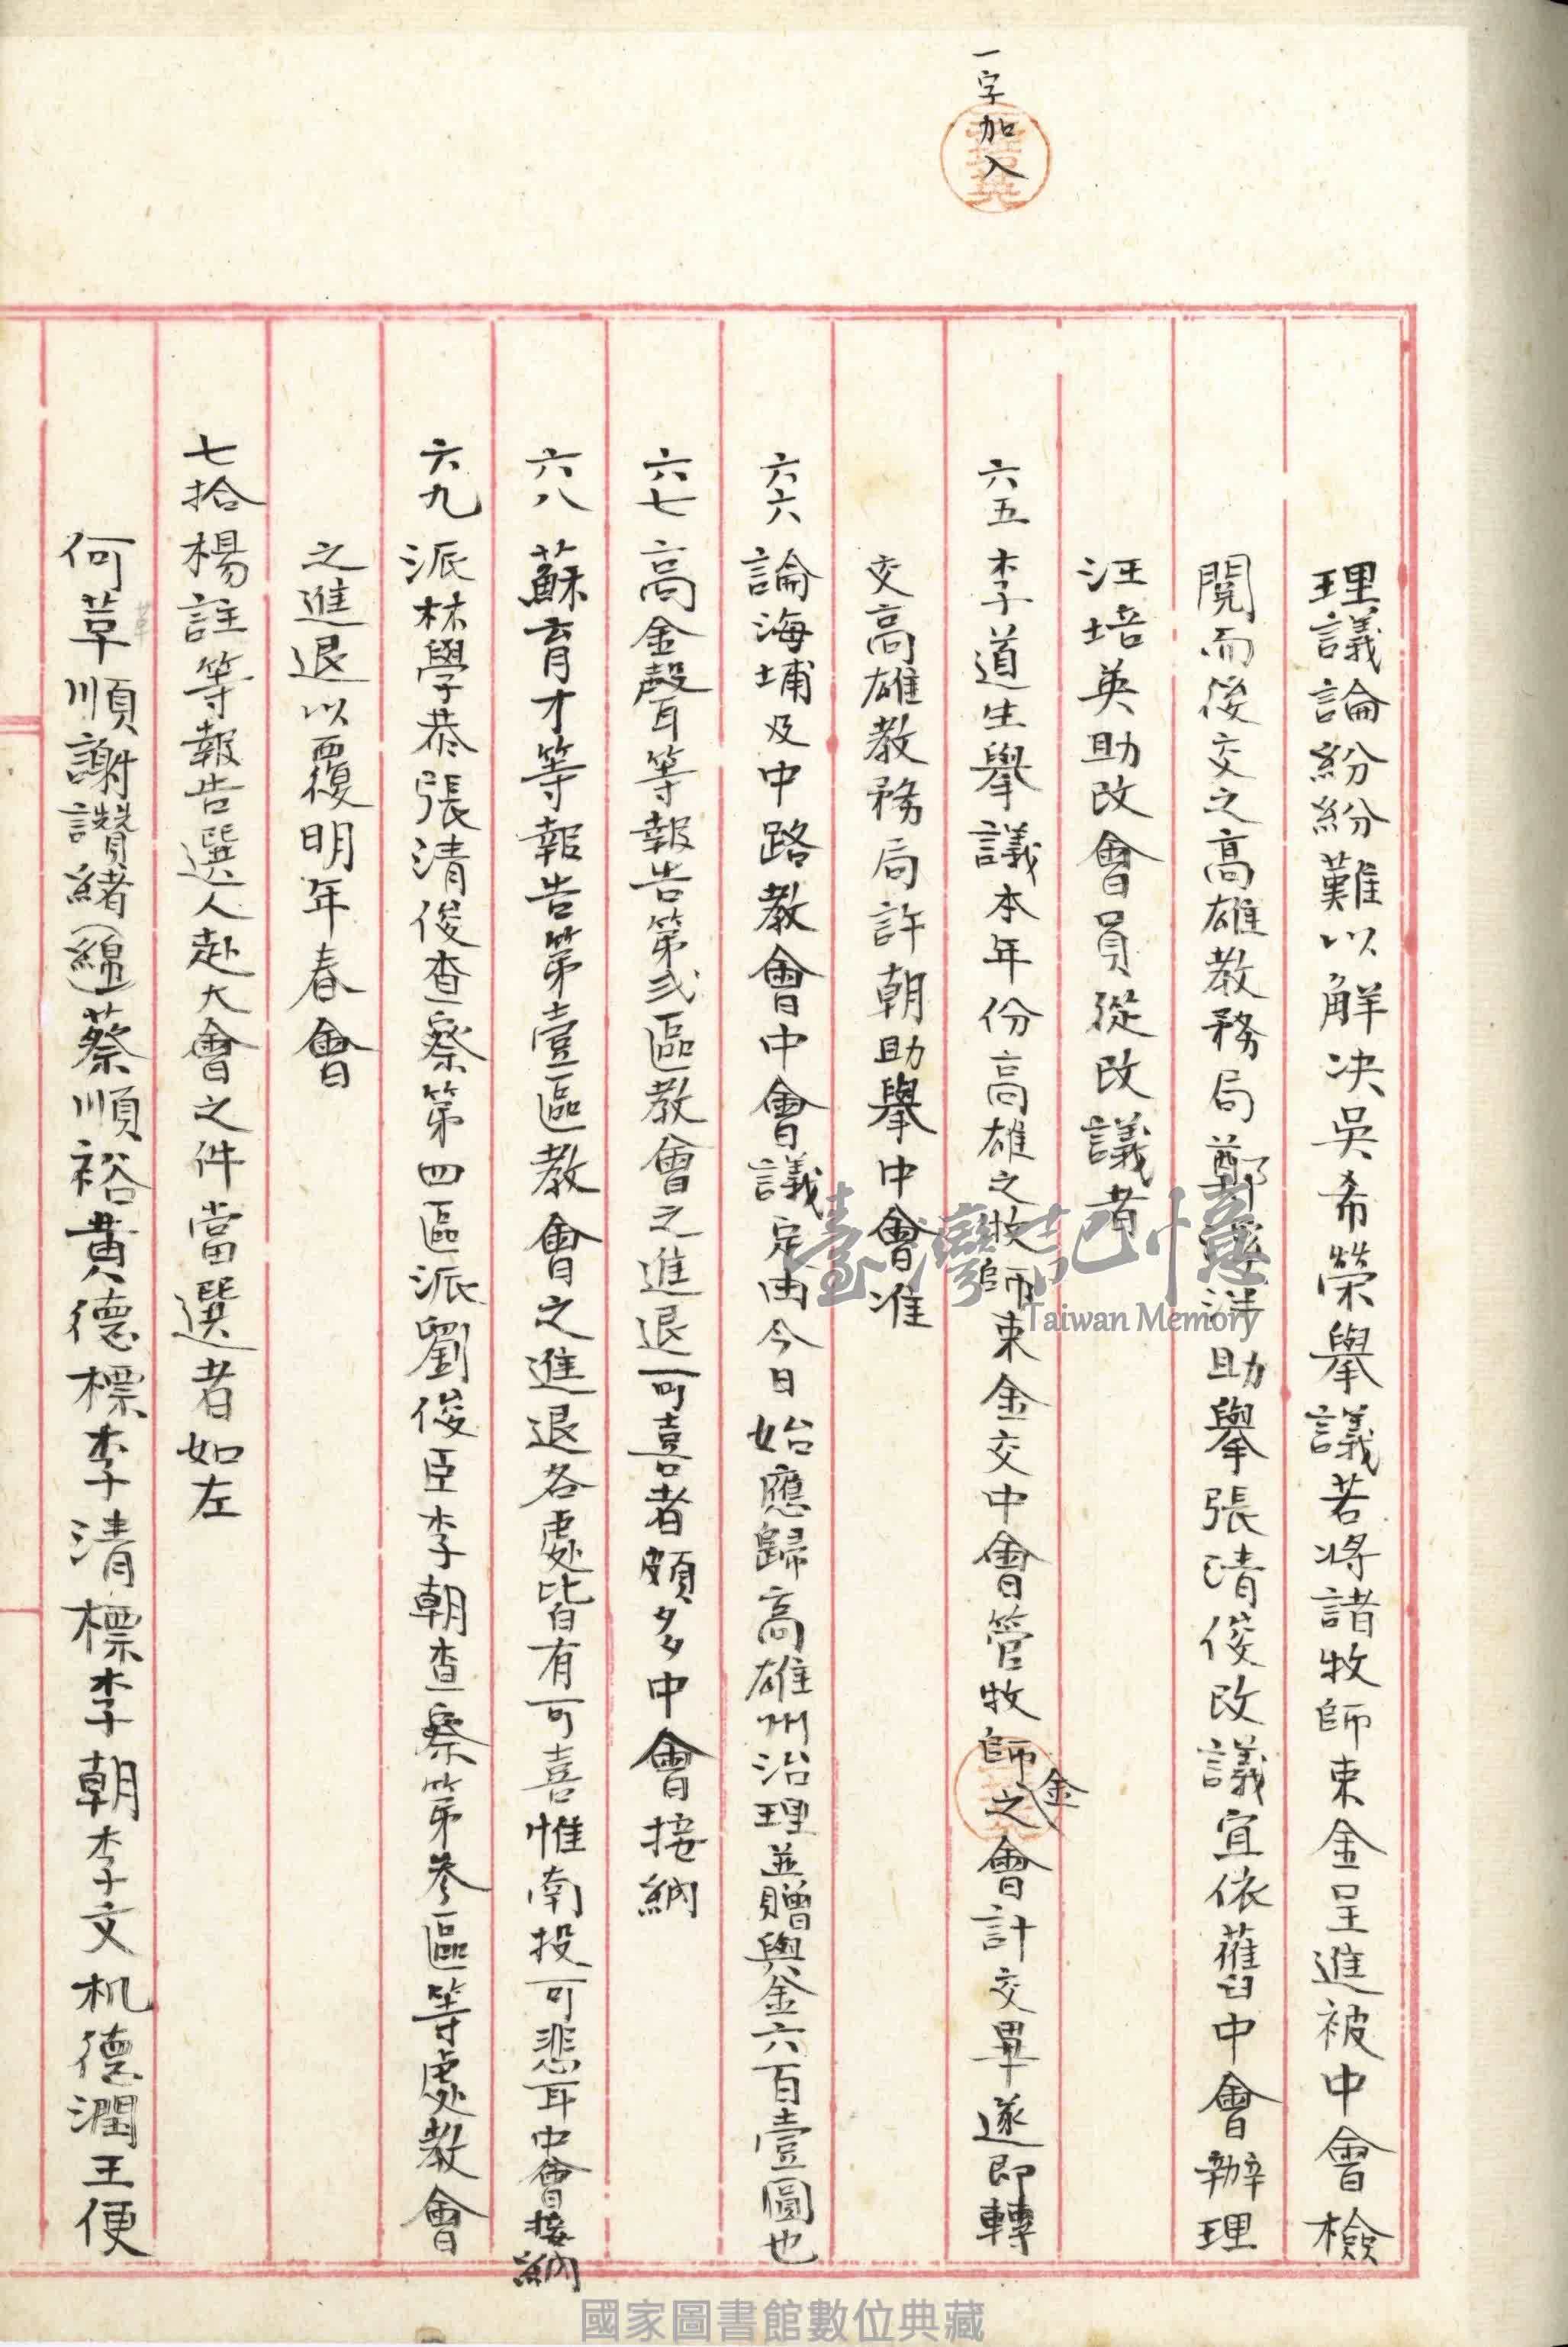 一字加入
理議論紛紛難以解决吳希榮舉議若將諸牧師束金呈進被中會檢
閱而後交之高雄教務局鄭溪泮助舉張清俊改議宜依舊中會辦理
汪培英助改會員從改議者
六五 李道生舉議本年份高雄之牧師束金交中會管牧師金之會計交畢遂即轉
交高雄教務局許朝助舉中會准
六六 論海埔及中路教會中會議定由今日始應歸高雄州治理並贈與金六百壹圓也
六七 高金聲等報告第弍區教會之進退可喜者頗多中會接納
六八 蘇育才等報告第壹區教會之進退各處皆有可喜惟南投可悲耳中會接納
六九 派林學恭張清俊查察第四區派劉俊臣李朝查察第叁區等處教會
之進退以覆明年春會
七拾 楊註等報告選人赴大會之件當選者如左
何草順謝讚緒(綿)蔡順裕黃德標李清標李朝李文机德潤王便
臺灣記憶
Taiwan Memory
國家圖書館數位典藏